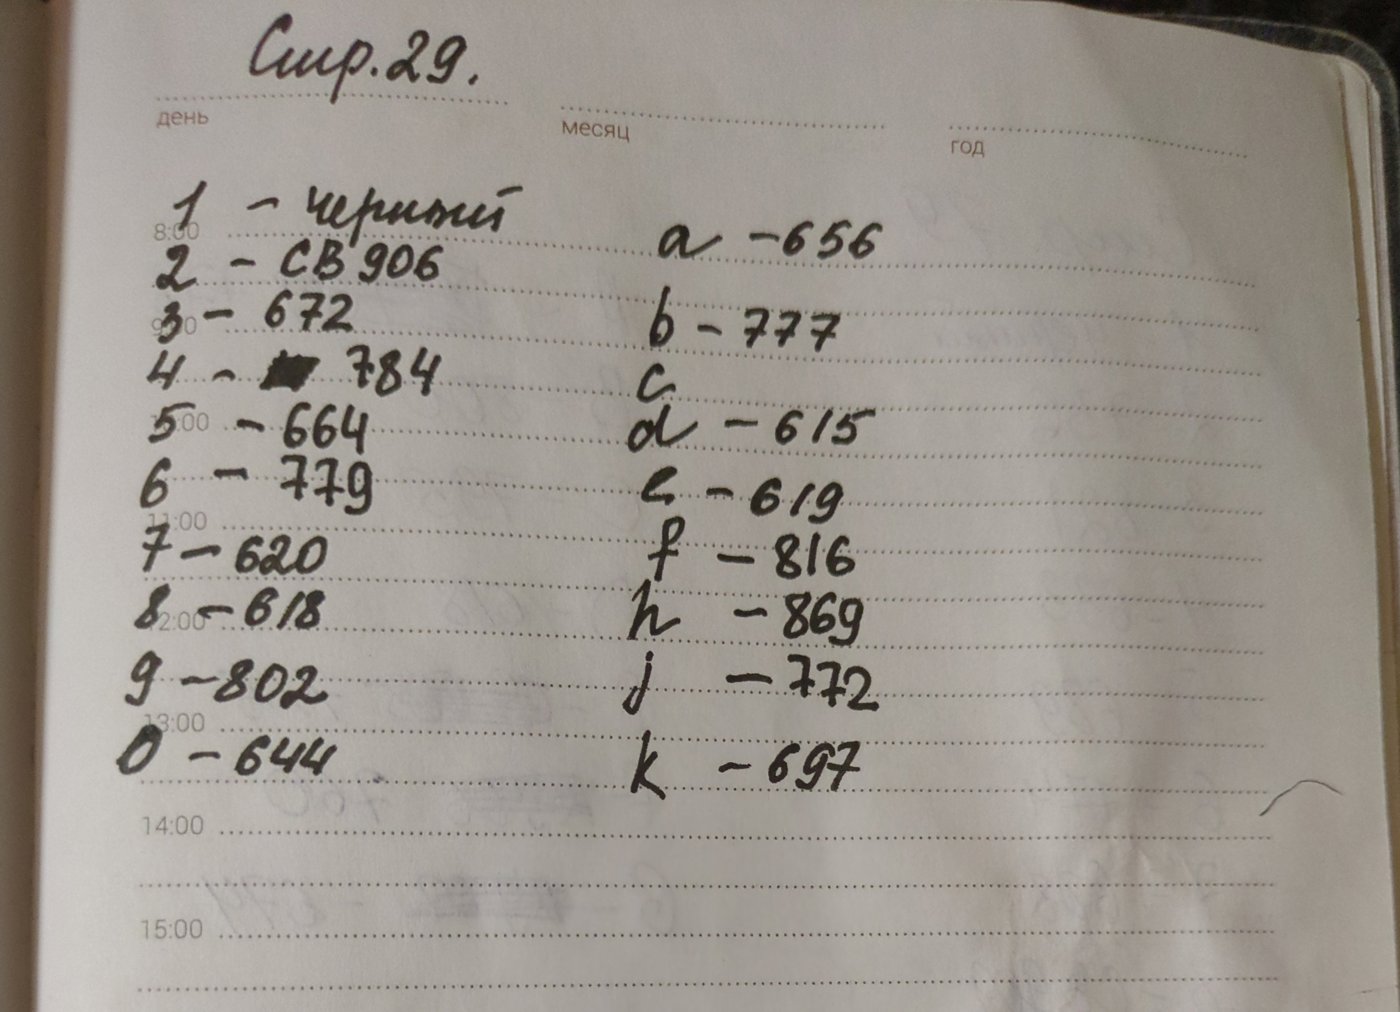 Стр. 29.
день месяц год
1 - черный
8:00
2 - СВ 906
3 - 672
9:00
4 - 784
5 - 664
6 - 779
11:00
7 - 620
8 - 618
12:00
9 - 802
13:00
0 - 644
14:00
15:00
a - 656
b - 777
c
d - 615
e - 619
f - 816
h - 869
j - 772
k - 697